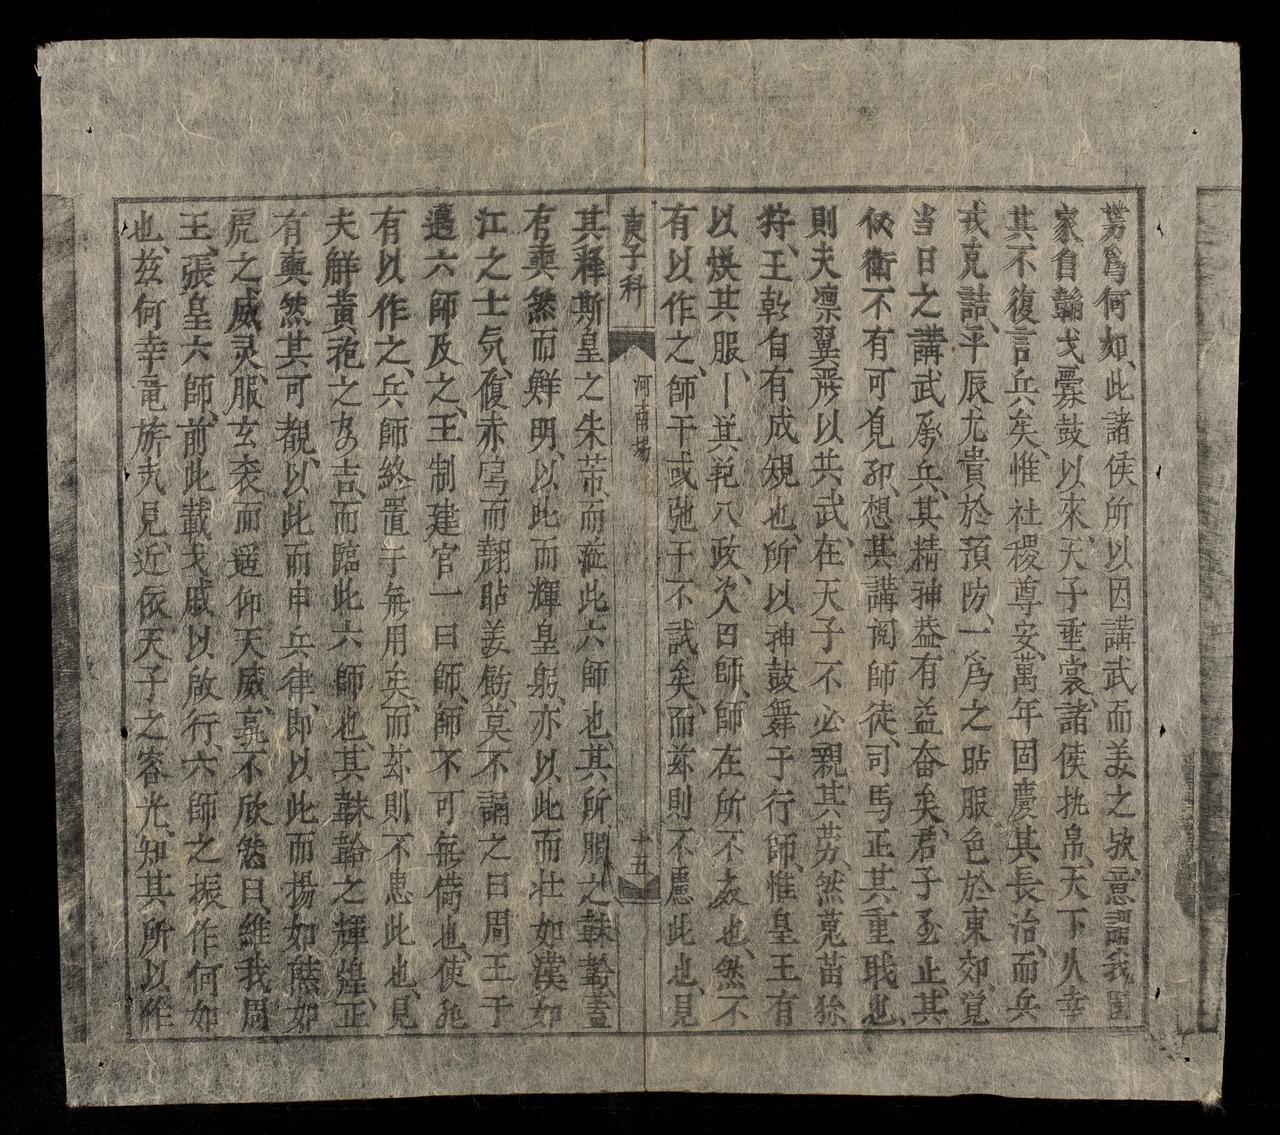 勞爲何如、此諸侯所以因講武而美之欤、意謂我国
家自韜戈櫜鼓以來、天子垂裳、諸侯执帛、天下久幸
其不復言兵矣、惟社稷尊安、萬年固慶其長治、而兵
戎克詰、平辰尤貴於預防、一爲之貼服色於東郊、覚
当日之講武殇兵、其精神益有益奋矣、君子至止、其
仪衛不有可見乎、想其講阅師徒、司馬正其重戢也、
則夫凛翼飛以共武、在天子不必親其劳、然蒐苗狝
狩、王乾自有成規也、所以神鼓舞于行師、惟皇王有
以煥其服、箕範八政、次曰師、師在所不廃也、然不
有以作之、師干或弛、干不試矣、而玆則不慮此也、見
庚子科
河南場
十五
其釋斯皇之朱芾、而涖此六師也、其所服之韎韐、盖
有奭然而鮮明、以此而輝皇躬、亦以此而壮如漢如
江之士気、復赤舄而翔貼美飭、莫不誦之曰周王于
邁六師及之、王制建官一曰師、師不可無俻也、使非
有以作之、兵師終置于無用矣、而玆則不患此也、見
夫觧黄袍之安吉、而臨此六師也、其韎韐之輝煌、正
有奭然其可覩、以此而申兵律、即以此而揚如熊如
虎之威灵、服玄衮而遥仰天威、孰不欣然曰、維我周
王、張皇六師、前此載戈戚以啟行、六師之振作何如
也、玆何幸竜旂夹見、近依天子之容光、知其所以作